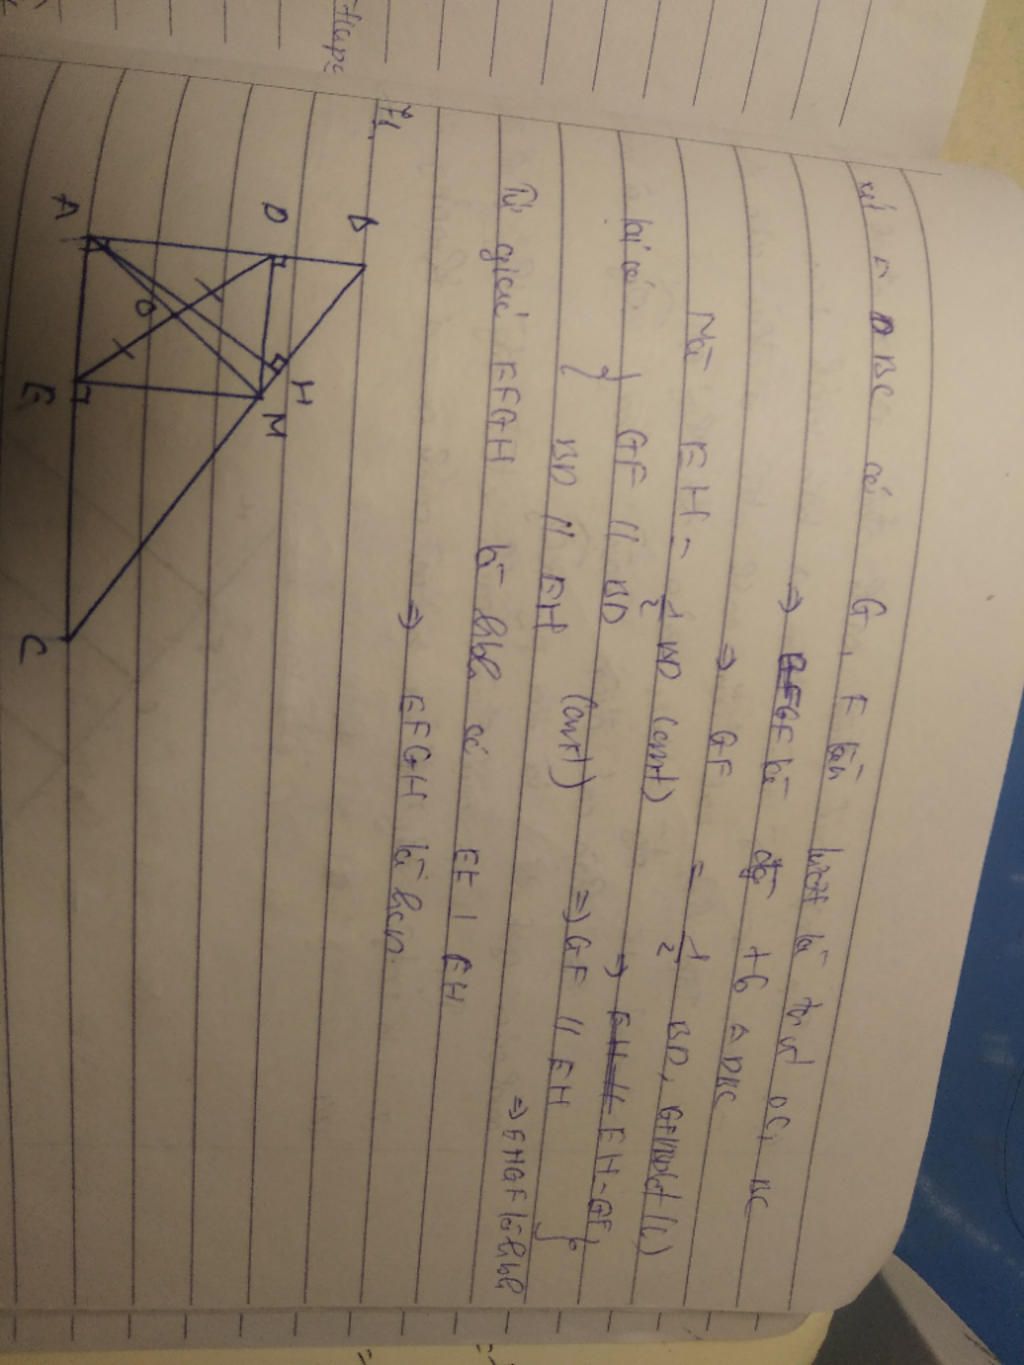 xét △ DBC có G, F lần lượt là tr.đ DC, BC
⇒ GF là đg TB △ DBC
⇒ GF = 1/2 BD, GF//BD (1)
Mà EH = 1/2 BD (cmt)
⇒ EH = GF
lại có } GF // BD
BD // EH (cmt) ⇒ GF // EH
⇒ EHGF là hbh
Tứ giác EFGH là hbh có EF ⊥ EH
⇒ EFGH là hcn.
7,
B
D
H
M
A
O
E
C